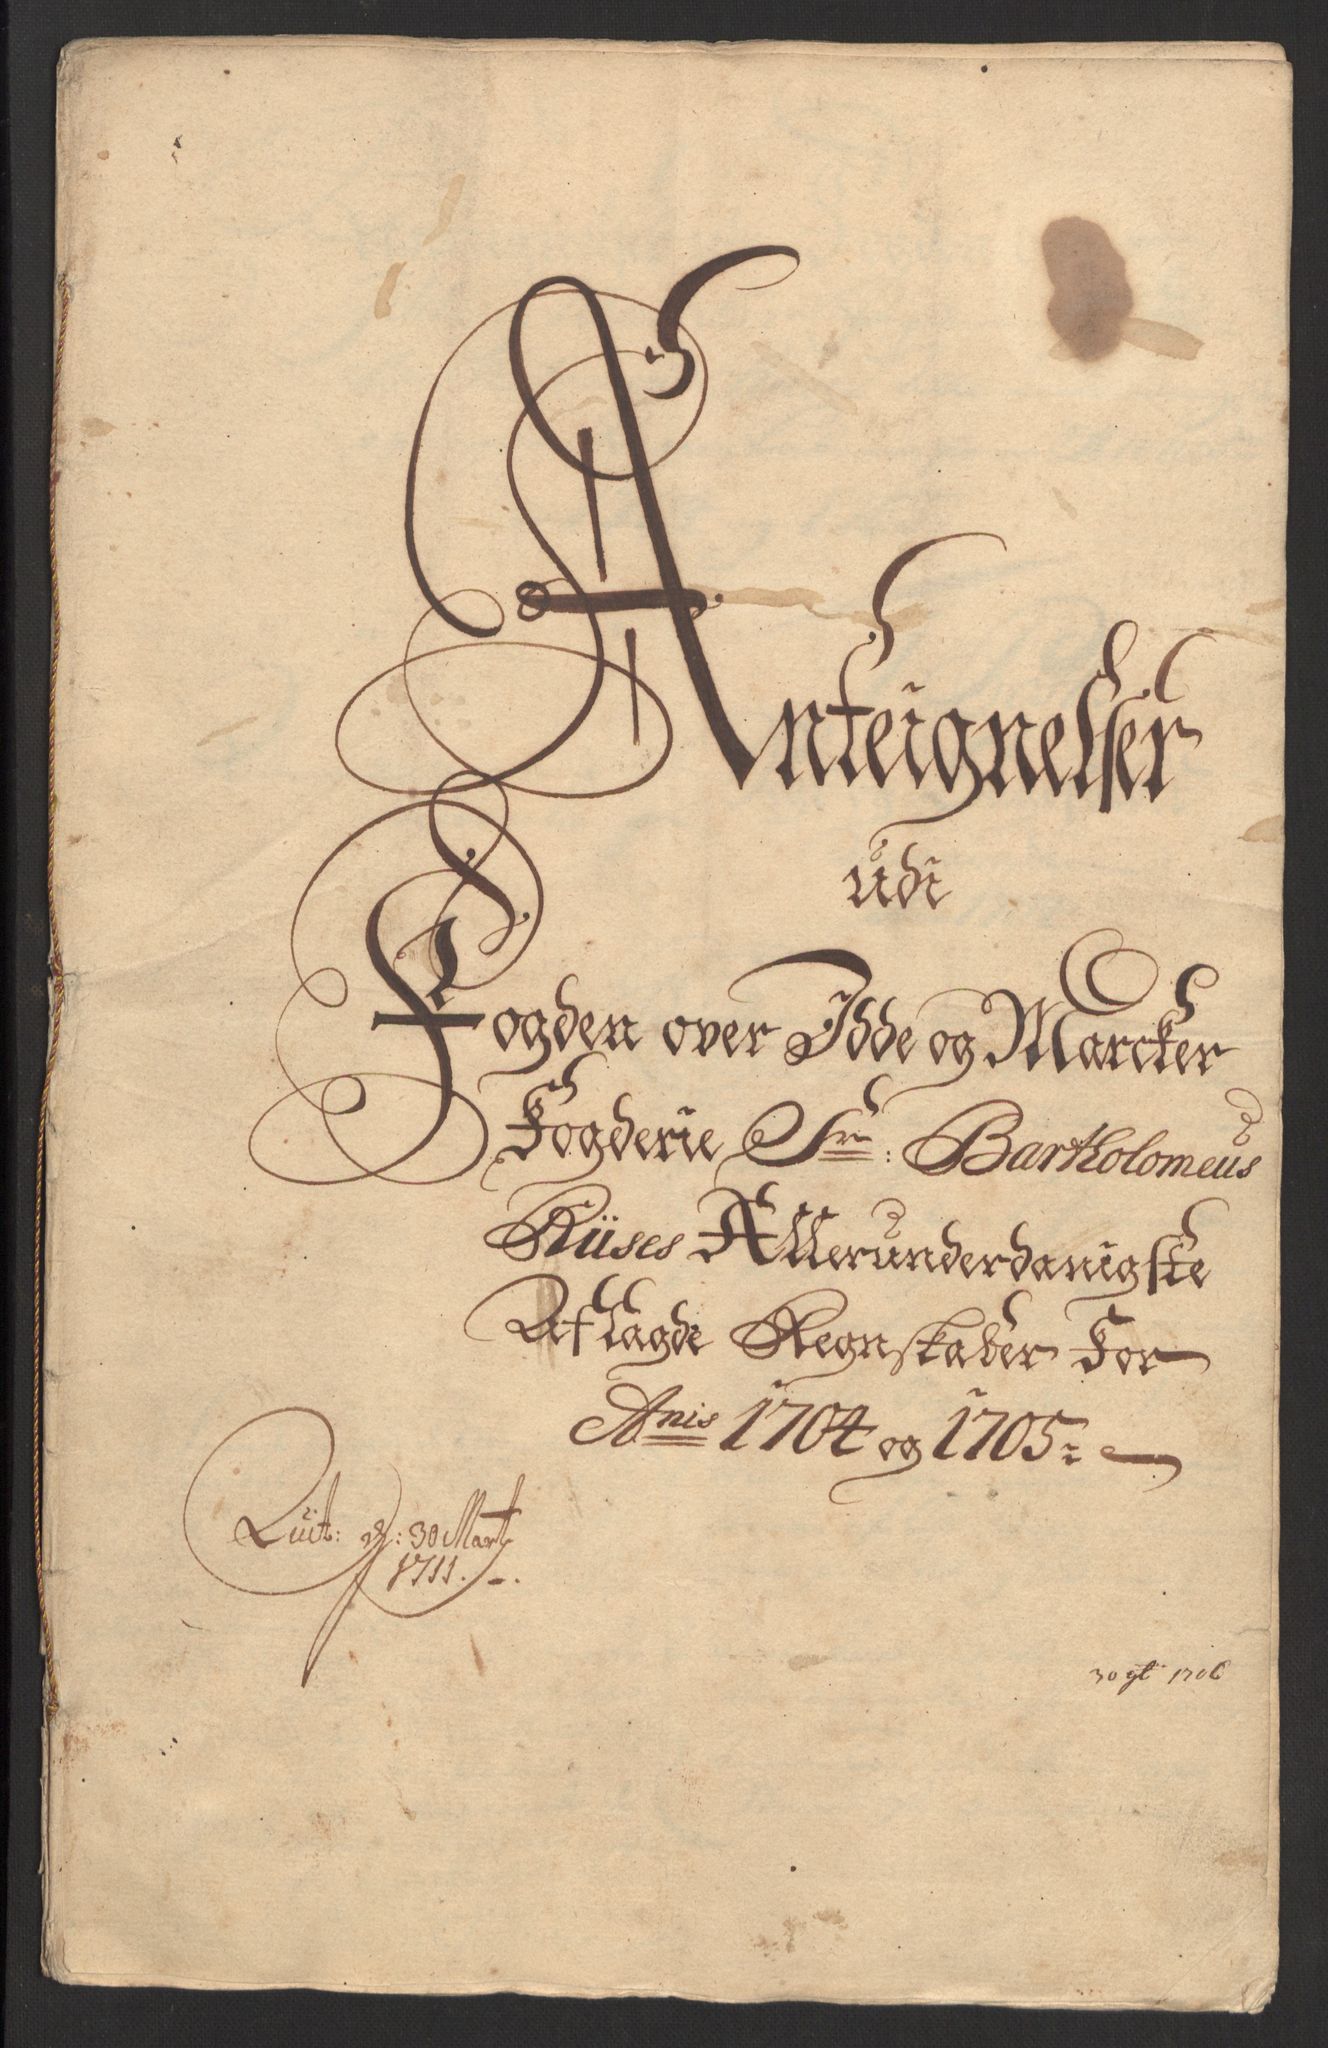 Anteignelser
udi
Fogden over Idde og Marcker
Fogderie Sr: Bartholomeus
Rüses Allerunderdanigste
Aflagde Regnskaber For
Anis 1704 og 1705:
Quit: d: 30 Marty
1711.
1706